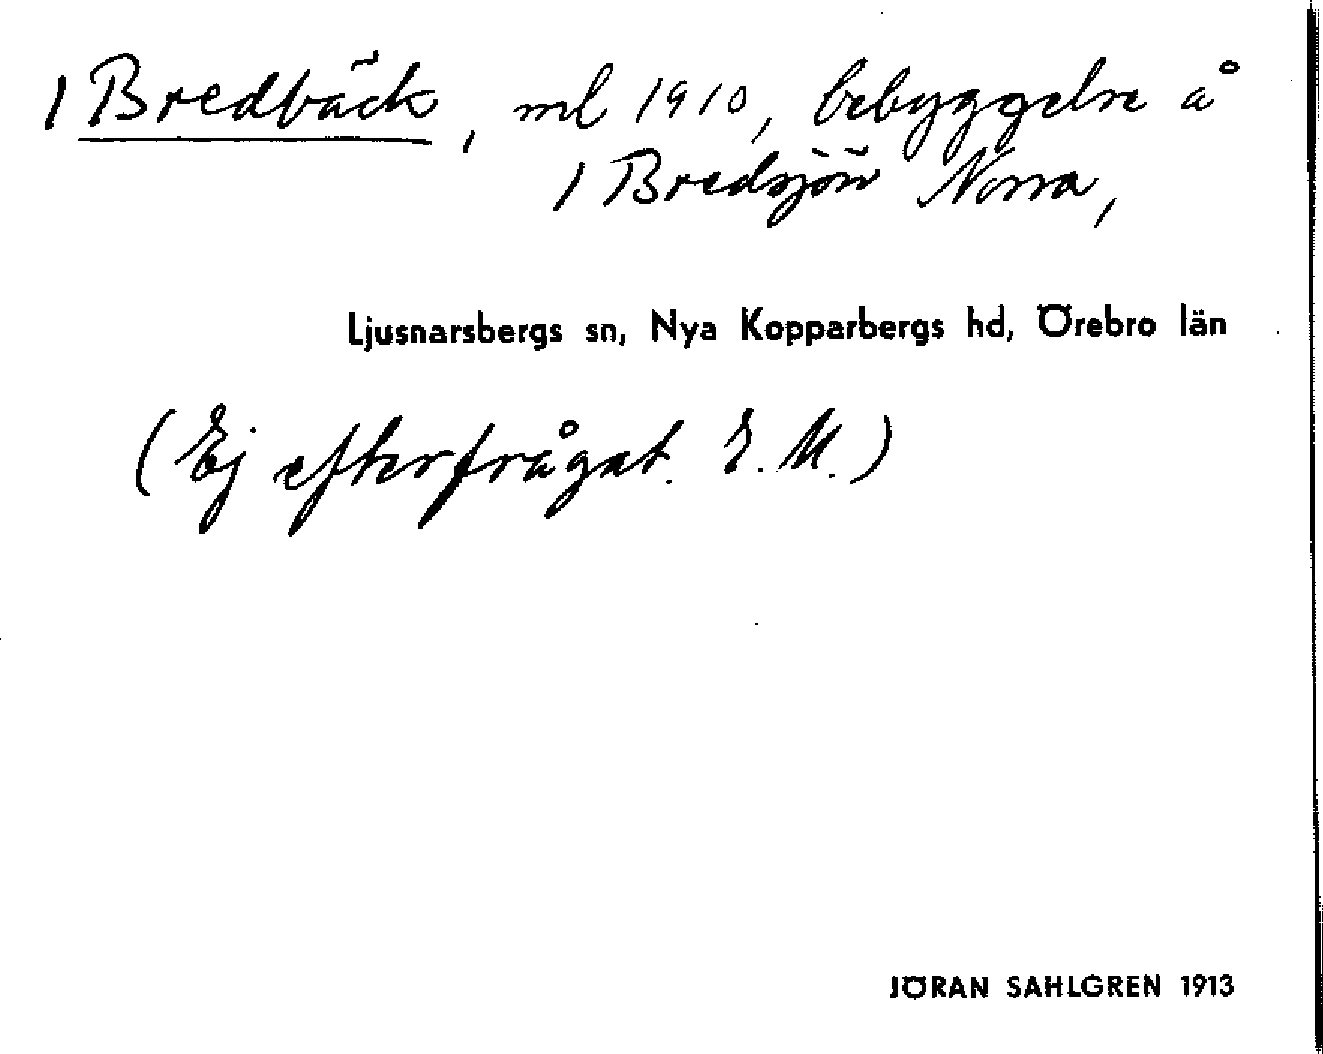 / Bredbäck, ml 1910, bebyggelse å
/ Bredsjön Norra,
Ljusnarsbergs sn, Nya Kopparbergs hd, Örebro län
(Ej efterfrågat. E. M.)
JÖRAN SAHLGREN 1913